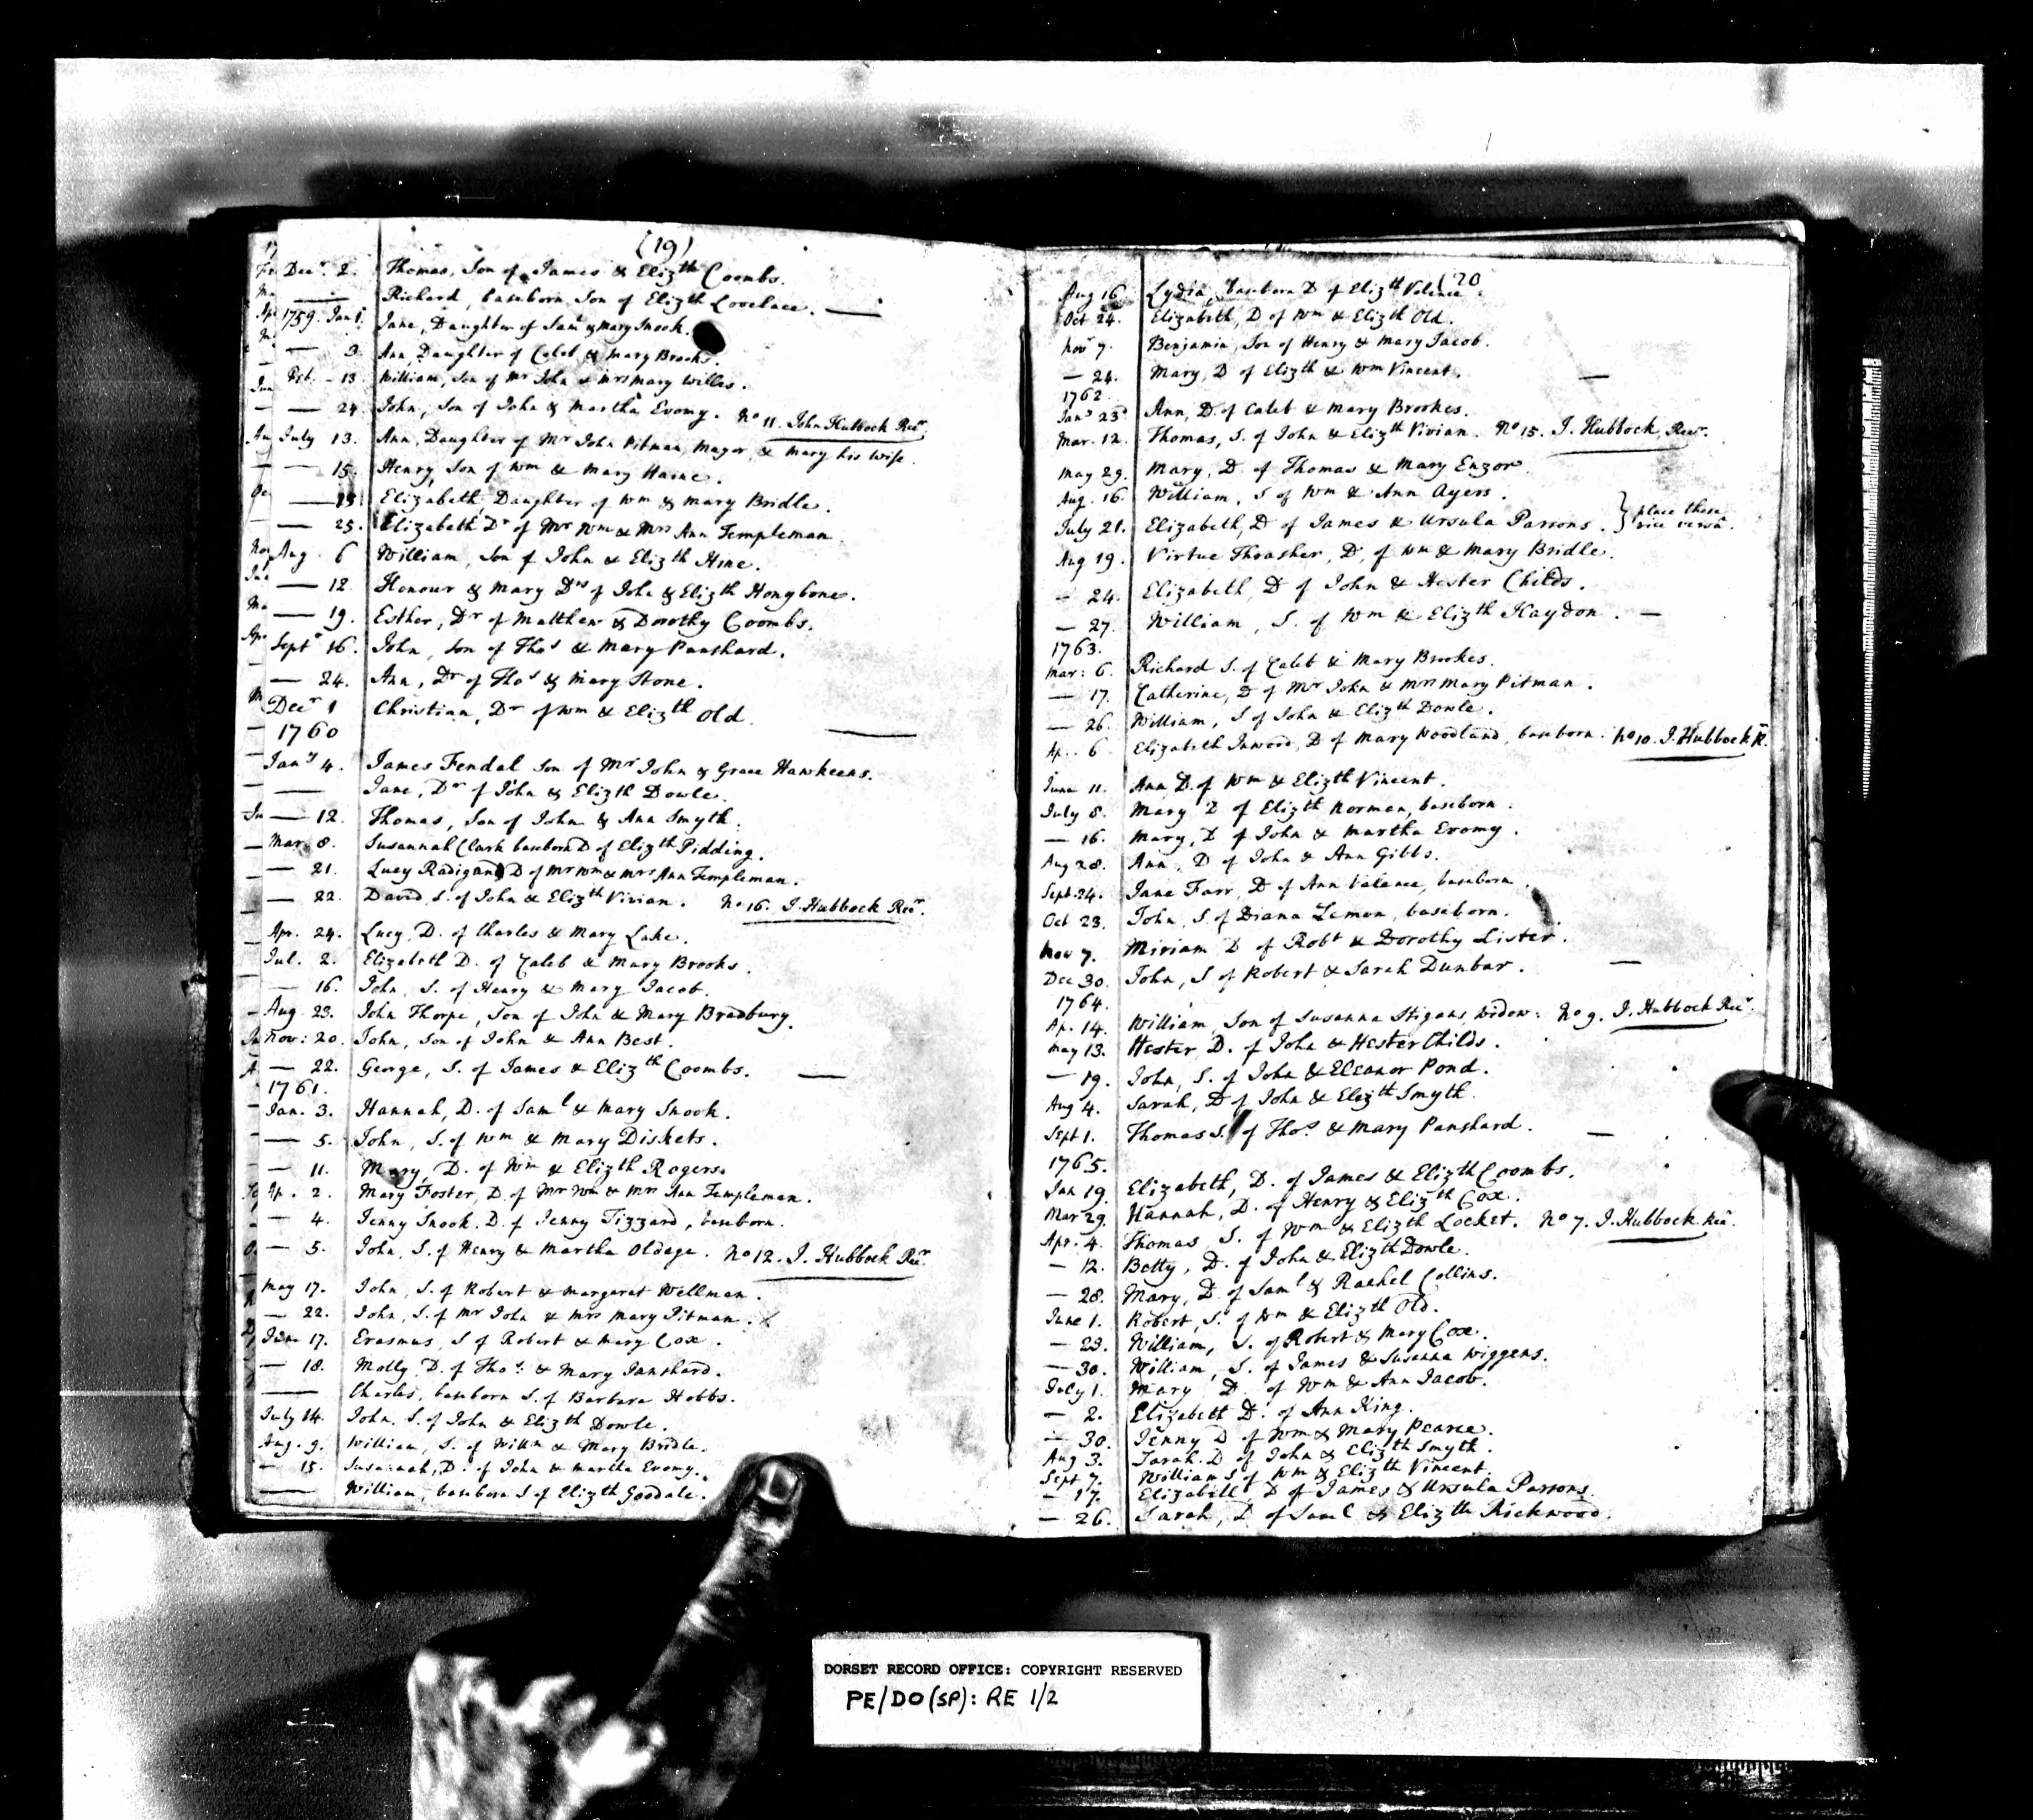 (19)
Decr. 2. Thomas, Son of James & Elizth Coombs.
—— Richard, baseborn Son of Elizth Lovelace. ——
1759. Jan 1. Jane, Daughter of Saml & Mary Snook.
— 3. Ann Daughter of Caleb & Mary Brooks.
Feb. - 13. William, Son of Mr John & Mrs Mary Willis.
— 24. John, Son of John & Martha Evomy. No 11. John Hubbock Recr.
July 13. Ann, Daughter of Mr John Pitman, Mayor, & Mary his Wife.
— 15. Henry, Son of Wm & Mary Haine.
— Elizabeth, Daughter of Wm & Mary Bridle.
— 25. Elizabeth Dr of Mr Wm & Mrs Ann Templeman.
Aug. 6 William, Son of John & Elizth Hine.
— 12. Honour & Mary Drs of John & Elizth Hongbone.
— 19. Esther, Dr of Matthew & Dorothy Coombs.
Sept. 16. John, Son of Thos & Mary Panshard.
— 24. Ann, Dr of Thos & Mary Stone.
Decr 1 Christian, Dr of Wm & Elizth Old.
1760 ——
Jany 4. James Fendal Son of Mr John & Grace Hawkeens.
—— Jane, Dr of John & Elizth Dowle.
— 12. Thomas, Son of John & Ann Smyth.
Mar. 8. Susannah Clark baseborn D of Elizth Pidding.
— 21. Lucy Radigand D of Mr Wm & Mrs Ann Templeman.
— 22. David, S. of John & Elizth Vivian. No 16. J. Hubbock Recr.
Apr. 24. Lucy, D. of Charles & Mary Lake.
Jul. 2. Elizabeth D. of Caleb & Mary Brooks.
— 16. John, S. of Henry & Mary Jacob.
Aug. 23. John Thorpe, Son of John & Mary Bradbury.
Nov: 20. John, Son of John & Ann Best.
— 22. George, S. of James & Elizth Coombs. ——
1761.
Jan. 3. Hannah, D. of Saml & Mary Snook.
— 5. John, S. of Wm & Mary Diskets.
— 11. Mary, D. of Wm & Elizth Rogers.
Ap. 2. Mary Foster, D. of Mr Wm & Mrs Ann Templeman.
— 4. Jenny Snook. D. of Jenny Tizzard, baseborn.
— 5. John, S. of Henry & Martha Oldage. No 12. J. Hubbock Recr.
May 17. John, S. of Robert & Margaret Wellman.
— 22. John, S. of Mr John & Mrs Mary Pitman.
June 17. Erasmus, S of Robert & Mary Cox.
— 18. Molly D. of Thos. & Mary Panshard.
—— Charles, baseborn S. of Barbara Hobbs.
July 14. John. S. of John & Elizth Dowle.
Aug. 9. William, S. of Willm & Mary Bridle.
— 15. Susannah, D. of John & Martha Evomy.
—— William, baseborn S of Elizth Goodale.
(20
Aug 16 Lydia, baseborn D of Elizth Valence.
Oct 24. Elizabeth, D of Wm & Elizth Old.
Novr 7. Benjamin, Son of Henry & Mary Jacob.
— 24. Mary, D of Elizth & Wm Vincent. —
1762.
Jany 23 Ann, D. of Caleb & Mary Brookes.
Mar. 12. Thomas, S. of John & Elizth Vivian. No 15. J. Hubbock, Recr.
May 29. Mary, D. of Thomas & Mary Enzor.
Aug. 16. William, S of Wm & Ann Ayers.
July 21. Elizabeth, D of James & Ursula Parsons. } place these vice versa.
Aug 19. Virtue Thrasher, D. of Wm & Mary Bridle.
— 24. Elizabeth, D of John & Hester Childs.
— 27. William, S. of Wm & Elizth Haydon. —
1763.
Mar: 6. Richard S. of Caleb & Mary Brookes.
— 17. Catherine, D of Mr John & Mrs Mary Pitman.
— 26. William, S of John & Elizth Dowle.
Ap. 6 Elizabeth Inword, D of Mary Woodland, baseborn. No 10. J. Hubbock R.
June 11. Ann D. of Wm & Elizth Vincent.
July 8. Mary D of Elizth Norman, baseborn.
— 16. Mary, D of John & Martha Evomy.
Aug 28. Ann, D of John & Ann Gibbs.
Sept. 24. Jane Farr, D of Ann Valence, baseborn.
Oct 23. John, S. of Diana Lemon, baseborn.
Nov 7. Miriam D of Robt & Dorothy Lister.
Dec 30. John, S of Robert & Sarah Dunbar. —
1764.
Ap. 14. William, Son of Susanna Stigans, Widow: No 9. J. Hubbock Recr.
May 13. Hester, D. of John & Hester Childs.
— 19. John, S. of John & Eleanor Pond.
Aug 4. Sarah, D of John & Elizth Smyth.
Sept 1. Thomas S. of Thos. & Mary Panshard. —
1765.
Jan 19 Elizabeth, D. of James & Elizth Coombs.
Mar 29. Hannah, D. of Henry & Elizth Cox.
Apr. 4. Thomas S. of Wm & Elizth Locket. No 7. J. Hubbock Recr.
— 12. Betty, D. of John & Elizth Dowle.
— 28. Mary, D. of Saml & Rachel Collins.
June 1. Robert, S. of Wm & Elizth Old.
— 23. William, S. of Robert & Mary Cox.
— 30. William, S. of James & Susanna Wiggens.
July 1. Mary D. of Wm & Ann Jacob.
— 2. Elizabeth D. of Ann King.
— 30. Jenny D of Wm & Mary Pearce.
Aug 3. Sarah. D of John & Elizth Smyth.
Sept 7. William S of Wm & Elizth Vincent.
— 17. Elizabeth D of James & Ursula Parsons.
— 26. Sarah, D of Saml & Elizth Rickwood.
DORSET RECORD OFFICE: COPYRIGHT RESERVED
PE/DO(SP): RE 1/2